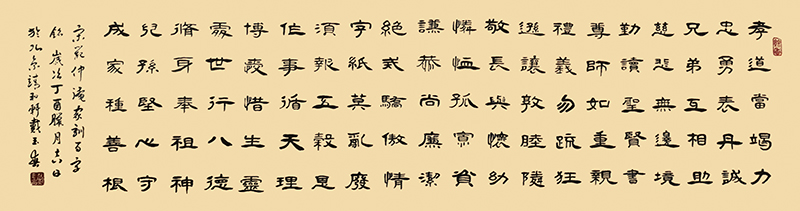 孝道當竭力
忠勇表丹誠
兄弟互相助
慈悲無邊境
勤讀聖賢書
尊師如重親
禮義勿疏狂
遜讓敦睦隣
敬長與懷幼
憐恤孤寡貧
謙恭尚廉潔
絕戒驕傲情
字紙莫亂廢
須報五穀恩
作事循天理
博愛惜生靈
處世行八德
脩身奉祖神
兒孫堅心守
成家種善根
宋范仲淹家訓百字
銘歲次丁酉臘月吉日
於北京